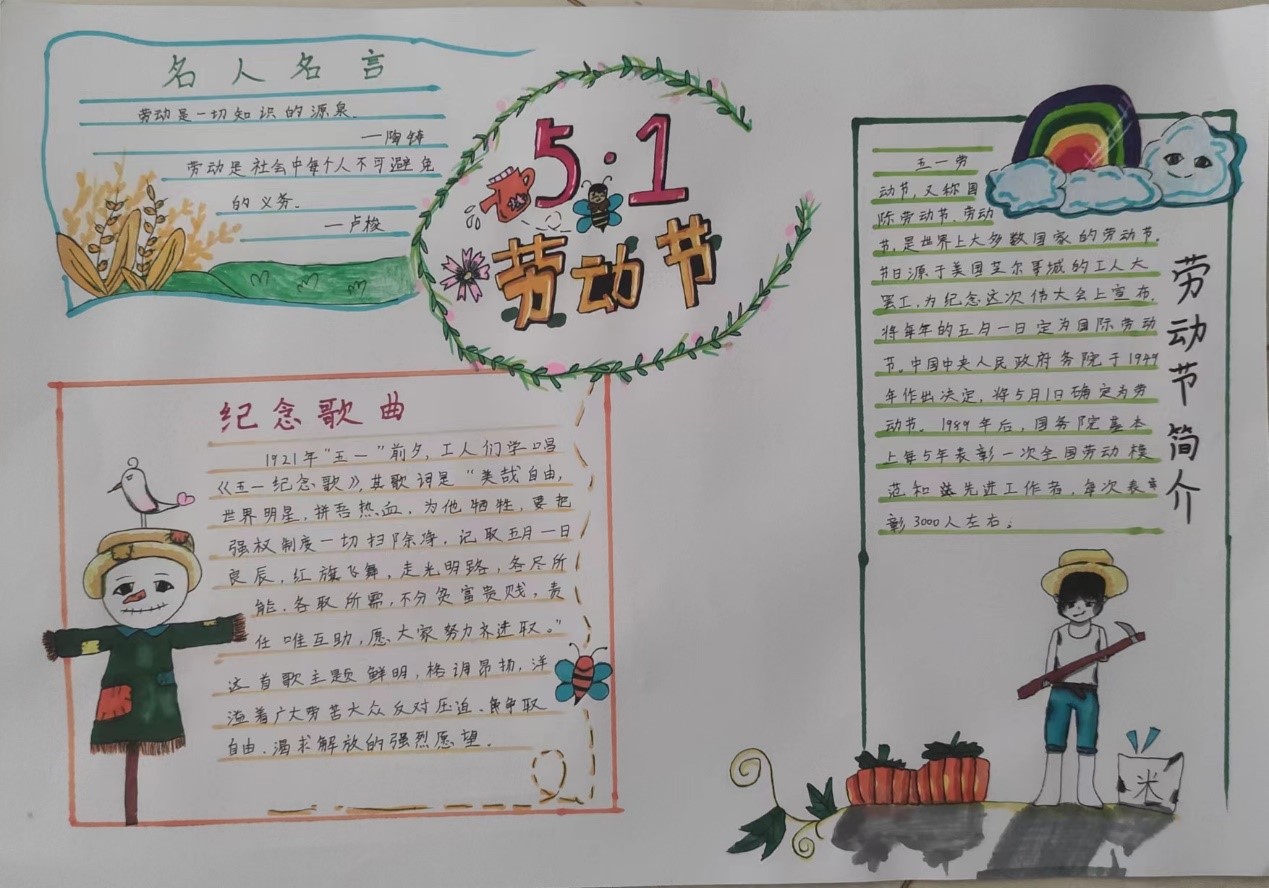 名人名言
劳动是一切知识的源泉.
—陶铸
劳动是社会中每个人不可避免
的义务。
—卢梭
5·1
劳动节
纪念歌曲
1921年“五一”前夕,工人们学唱
《五一纪念歌》,其歌词是“美哉自由,
世界明星,拼吾热血,为他牺牲,要把
强权制度一切扫除净,记取五月一日
良辰,红旗飞舞,走光明路,各尽所
能.各取所需,不分贫富贵贱,责
任唯互助,愿大家努力齐进取。”
这首歌主题鲜明,格调昂扬,洋
溢着广大劳苦大众反对压迫、争取
自由.渴求解放的强烈愿望.
劳动节简介
五一劳
动节,又称国
际劳动节、劳动
节,是世界上大多数国家的劳动节.
节日源于美国芝加哥城的工人大
罢工,为纪念这次伟大会上宣布,
将每年的五月一日定为国际劳动
节。中国中央人民政府务院于1949
年作出决定,将5月1日确定为劳
动节。1989年后,国务院基本
上每5年表彰一次全国劳动模
范和先进工作者,每次表
彰3000人左右。
米